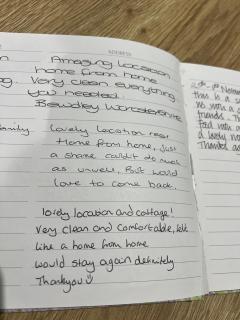 ADDRESS
Amazing Location
home from home
Very clean everything
you needed.
Bewdley Worcestershire
family. Lovely location real
Home from home, just
a shame couldn't do much
as unwell, But would
love to come back.
lovely location and cottage!
Very clean and comfortable, felt
like a home from home
would stay again definitely
Thankyou ☺
this is a
friends.
a lovely
Thanks